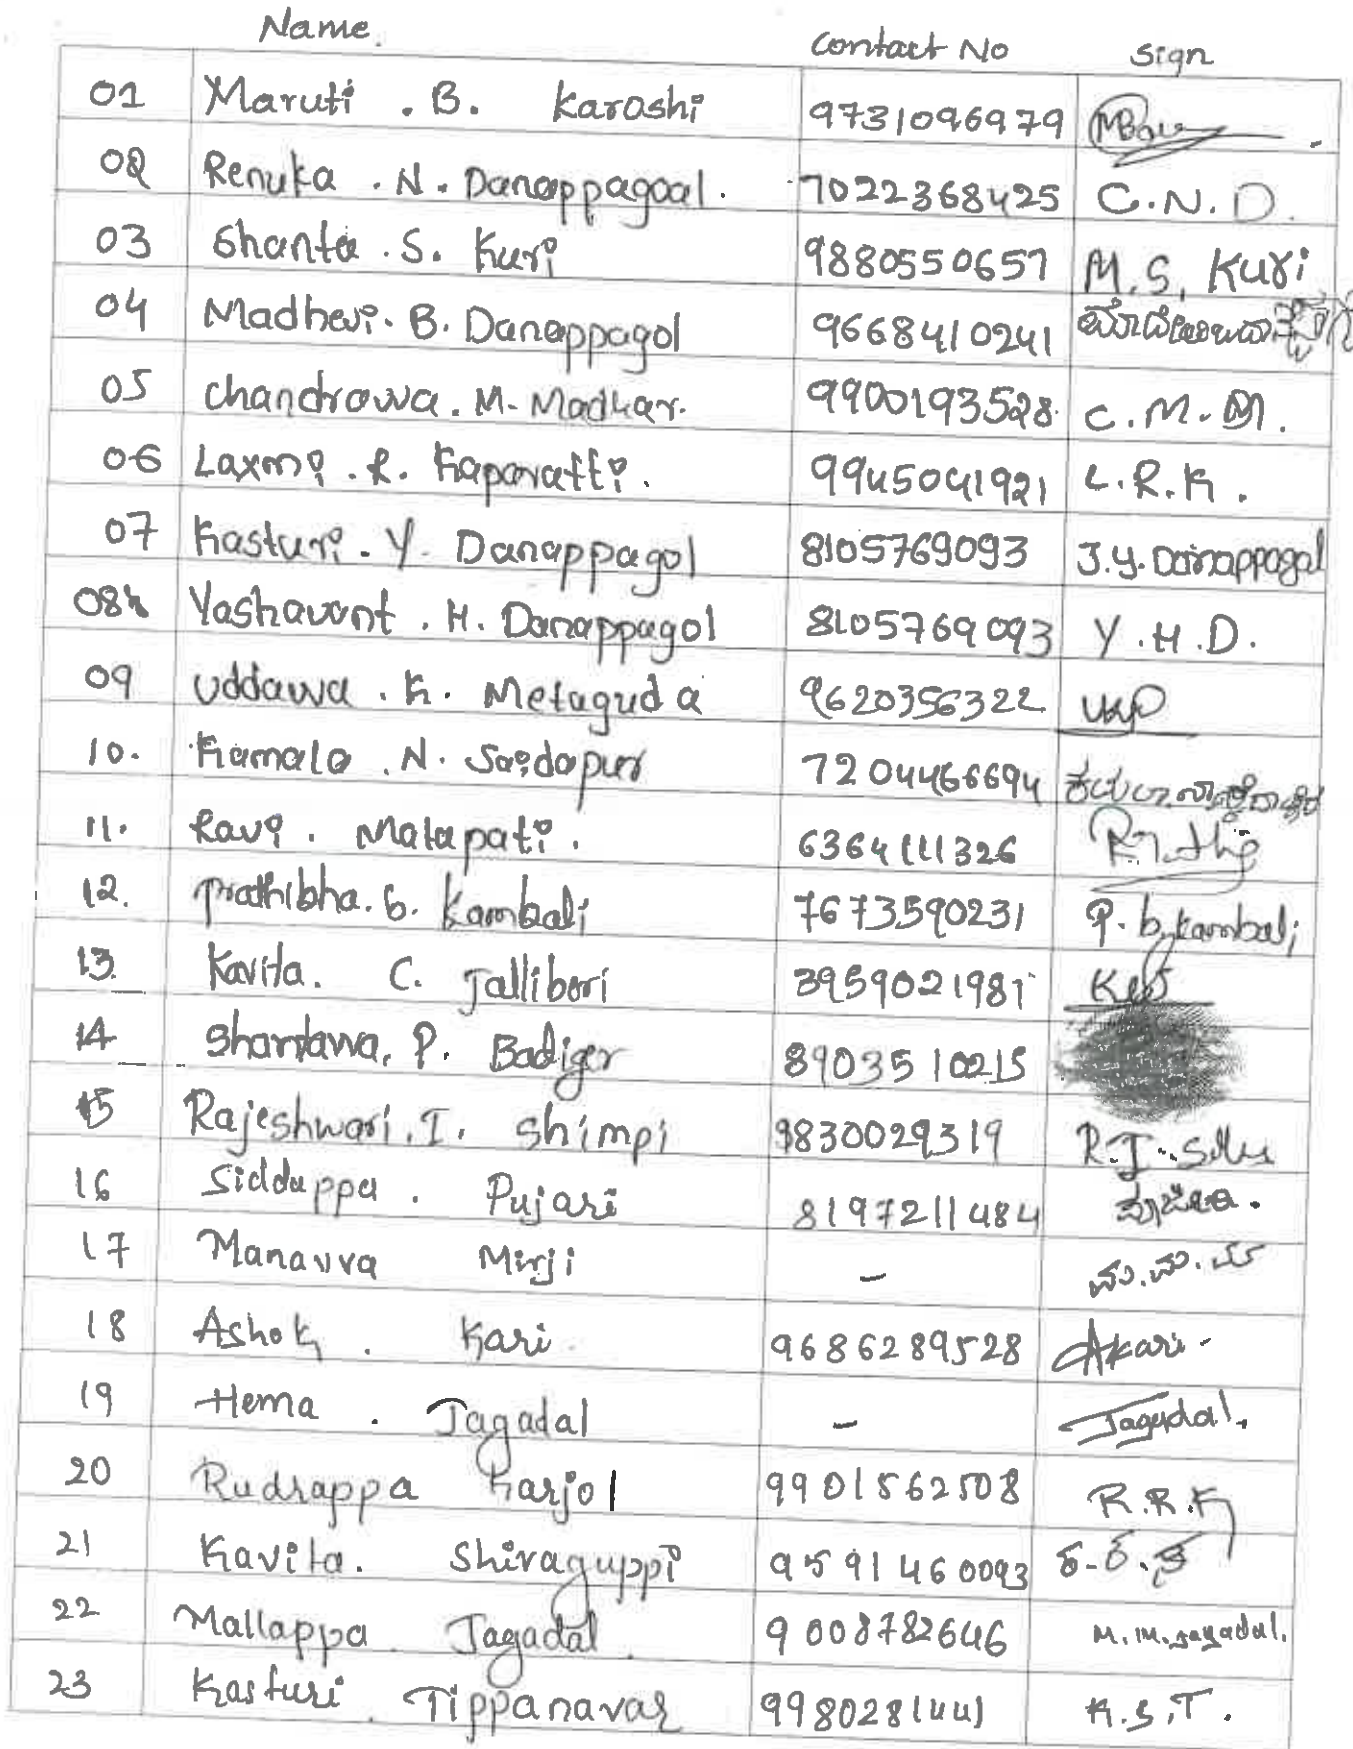 Name. Contact No Sign
01 Maruti . B. Karoshi 9731096979
02 Renuka . N. Danappagoal. 7022368425 C.N.D.
03 Shanta . S. Kuri 9880550657 M.S, Kuri
04 Madhevi. B. Danappagol 9668410241
05 Chandrawa. M. Madhar. 9900193528 C.M.M.
06 Laxmi . R. Kaparatti. 9945041921 L.R.K.
07 Kasturi. Y. Danappagol 8105769093 J.Y. Danappagal
08 Yashavant . H. Danappagol 8105769093 Y.H.D.
09 Uddawa . K. Metaguda 9620356322
10. Kamala . N. Saidapur 7204466694
11. Ravi . Matapati. 6364111326
12. Prathibha. b. Kambali 7673590231 P. b. kambali
13. Kavita. C. Jalliberi 3959021981
14 Shantawa, P. Badiger 8903510215
15 Rajeshwari. I. Shimpi 9830029319
16 Sidduppa . Pujari 8197211484 ಪೂಜೇರಿ.
17 Manavva Mirji - ಮ.ಮ.ಮ
18 Ashok . Kari 9686289528 Akari-
19 Hema . Jagadal - Jagadal.
20 Rudrappa Karjol 9901562508 R.R.K
21 Kavita. Shiraguppi 9591460093 ಕ-ರ.ಶಿ
22 Mallappa Jagadal. 9008782646 M.M.Jagadal.
23 Kasturi . Tippanavar 9980281441 K.S.T.